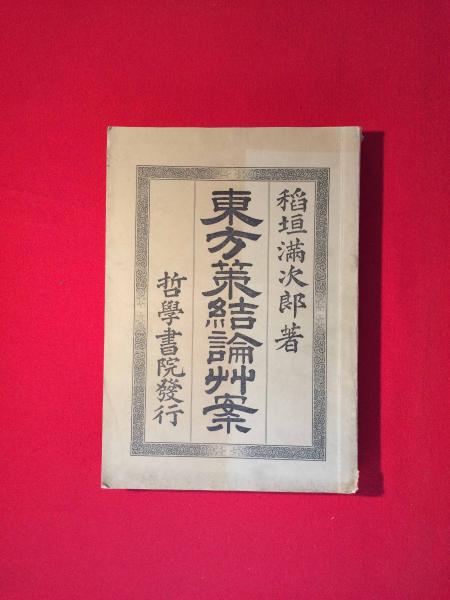 稻垣滿次郎著
東方策結論艸案
哲學書院發行